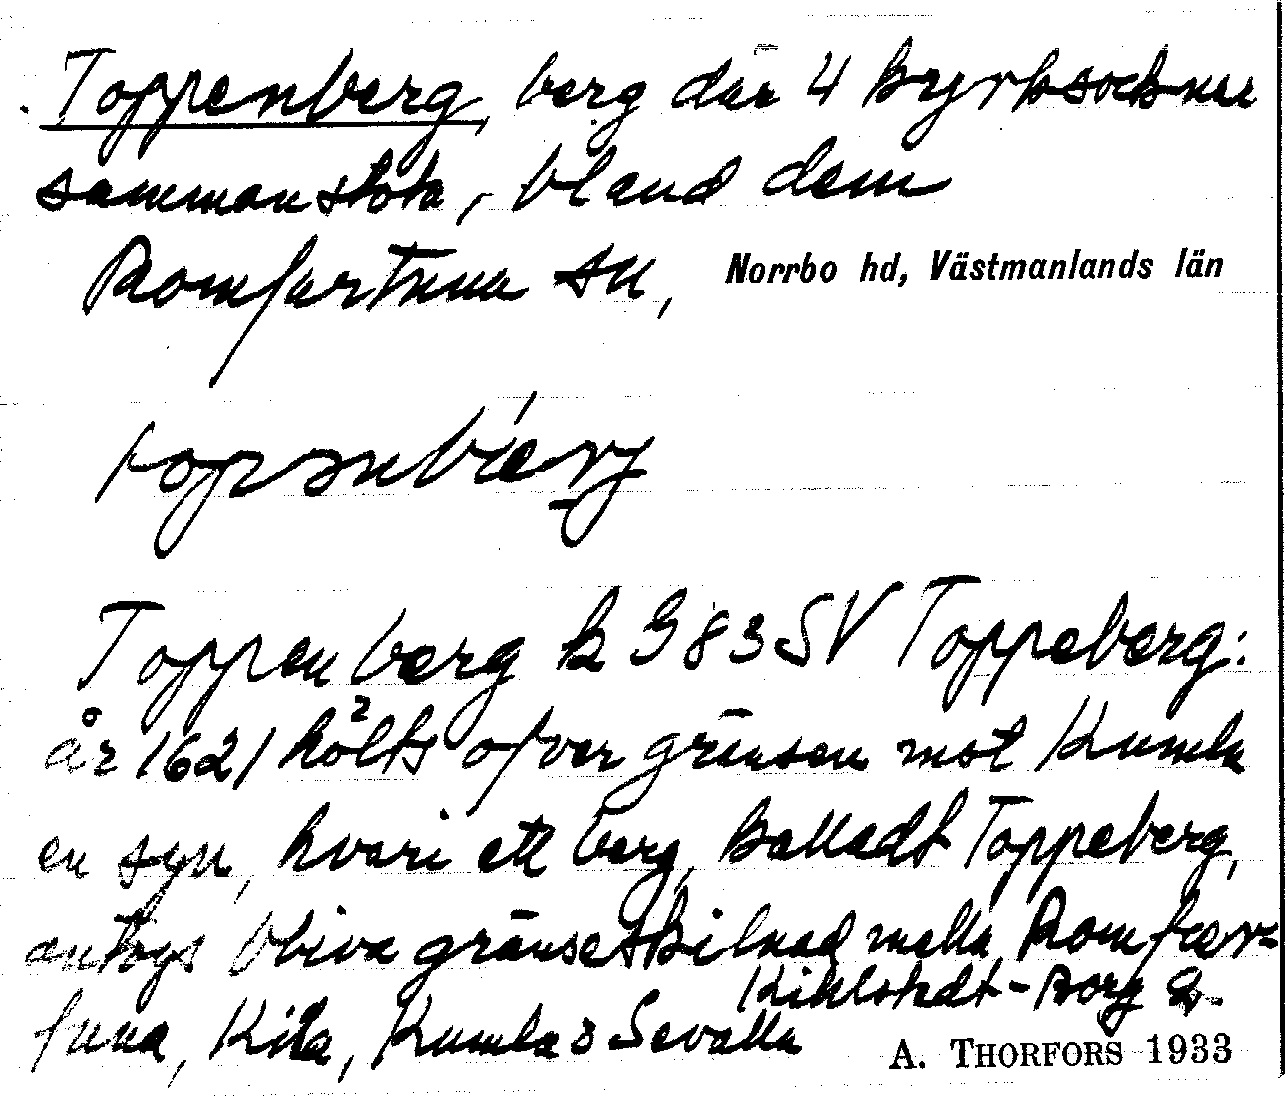 Toppenberg, berg där 4 kyrksocknar
sammanstöta, bland dem
Romfartuna sn, Norrbo hd, Västmanlands län
Toppenberg k G 83 SV Toppeberg:
år 1621 hölts öfver gränsen mot Kumla
en syn, hvari ett berg, kalladt Toppeberg,
antogs bliva gränseskilnad mella Romfar-
tuna, Kila, Kumla o Sevalla
Kihlstedt-Borg
A. THORFORS 1933